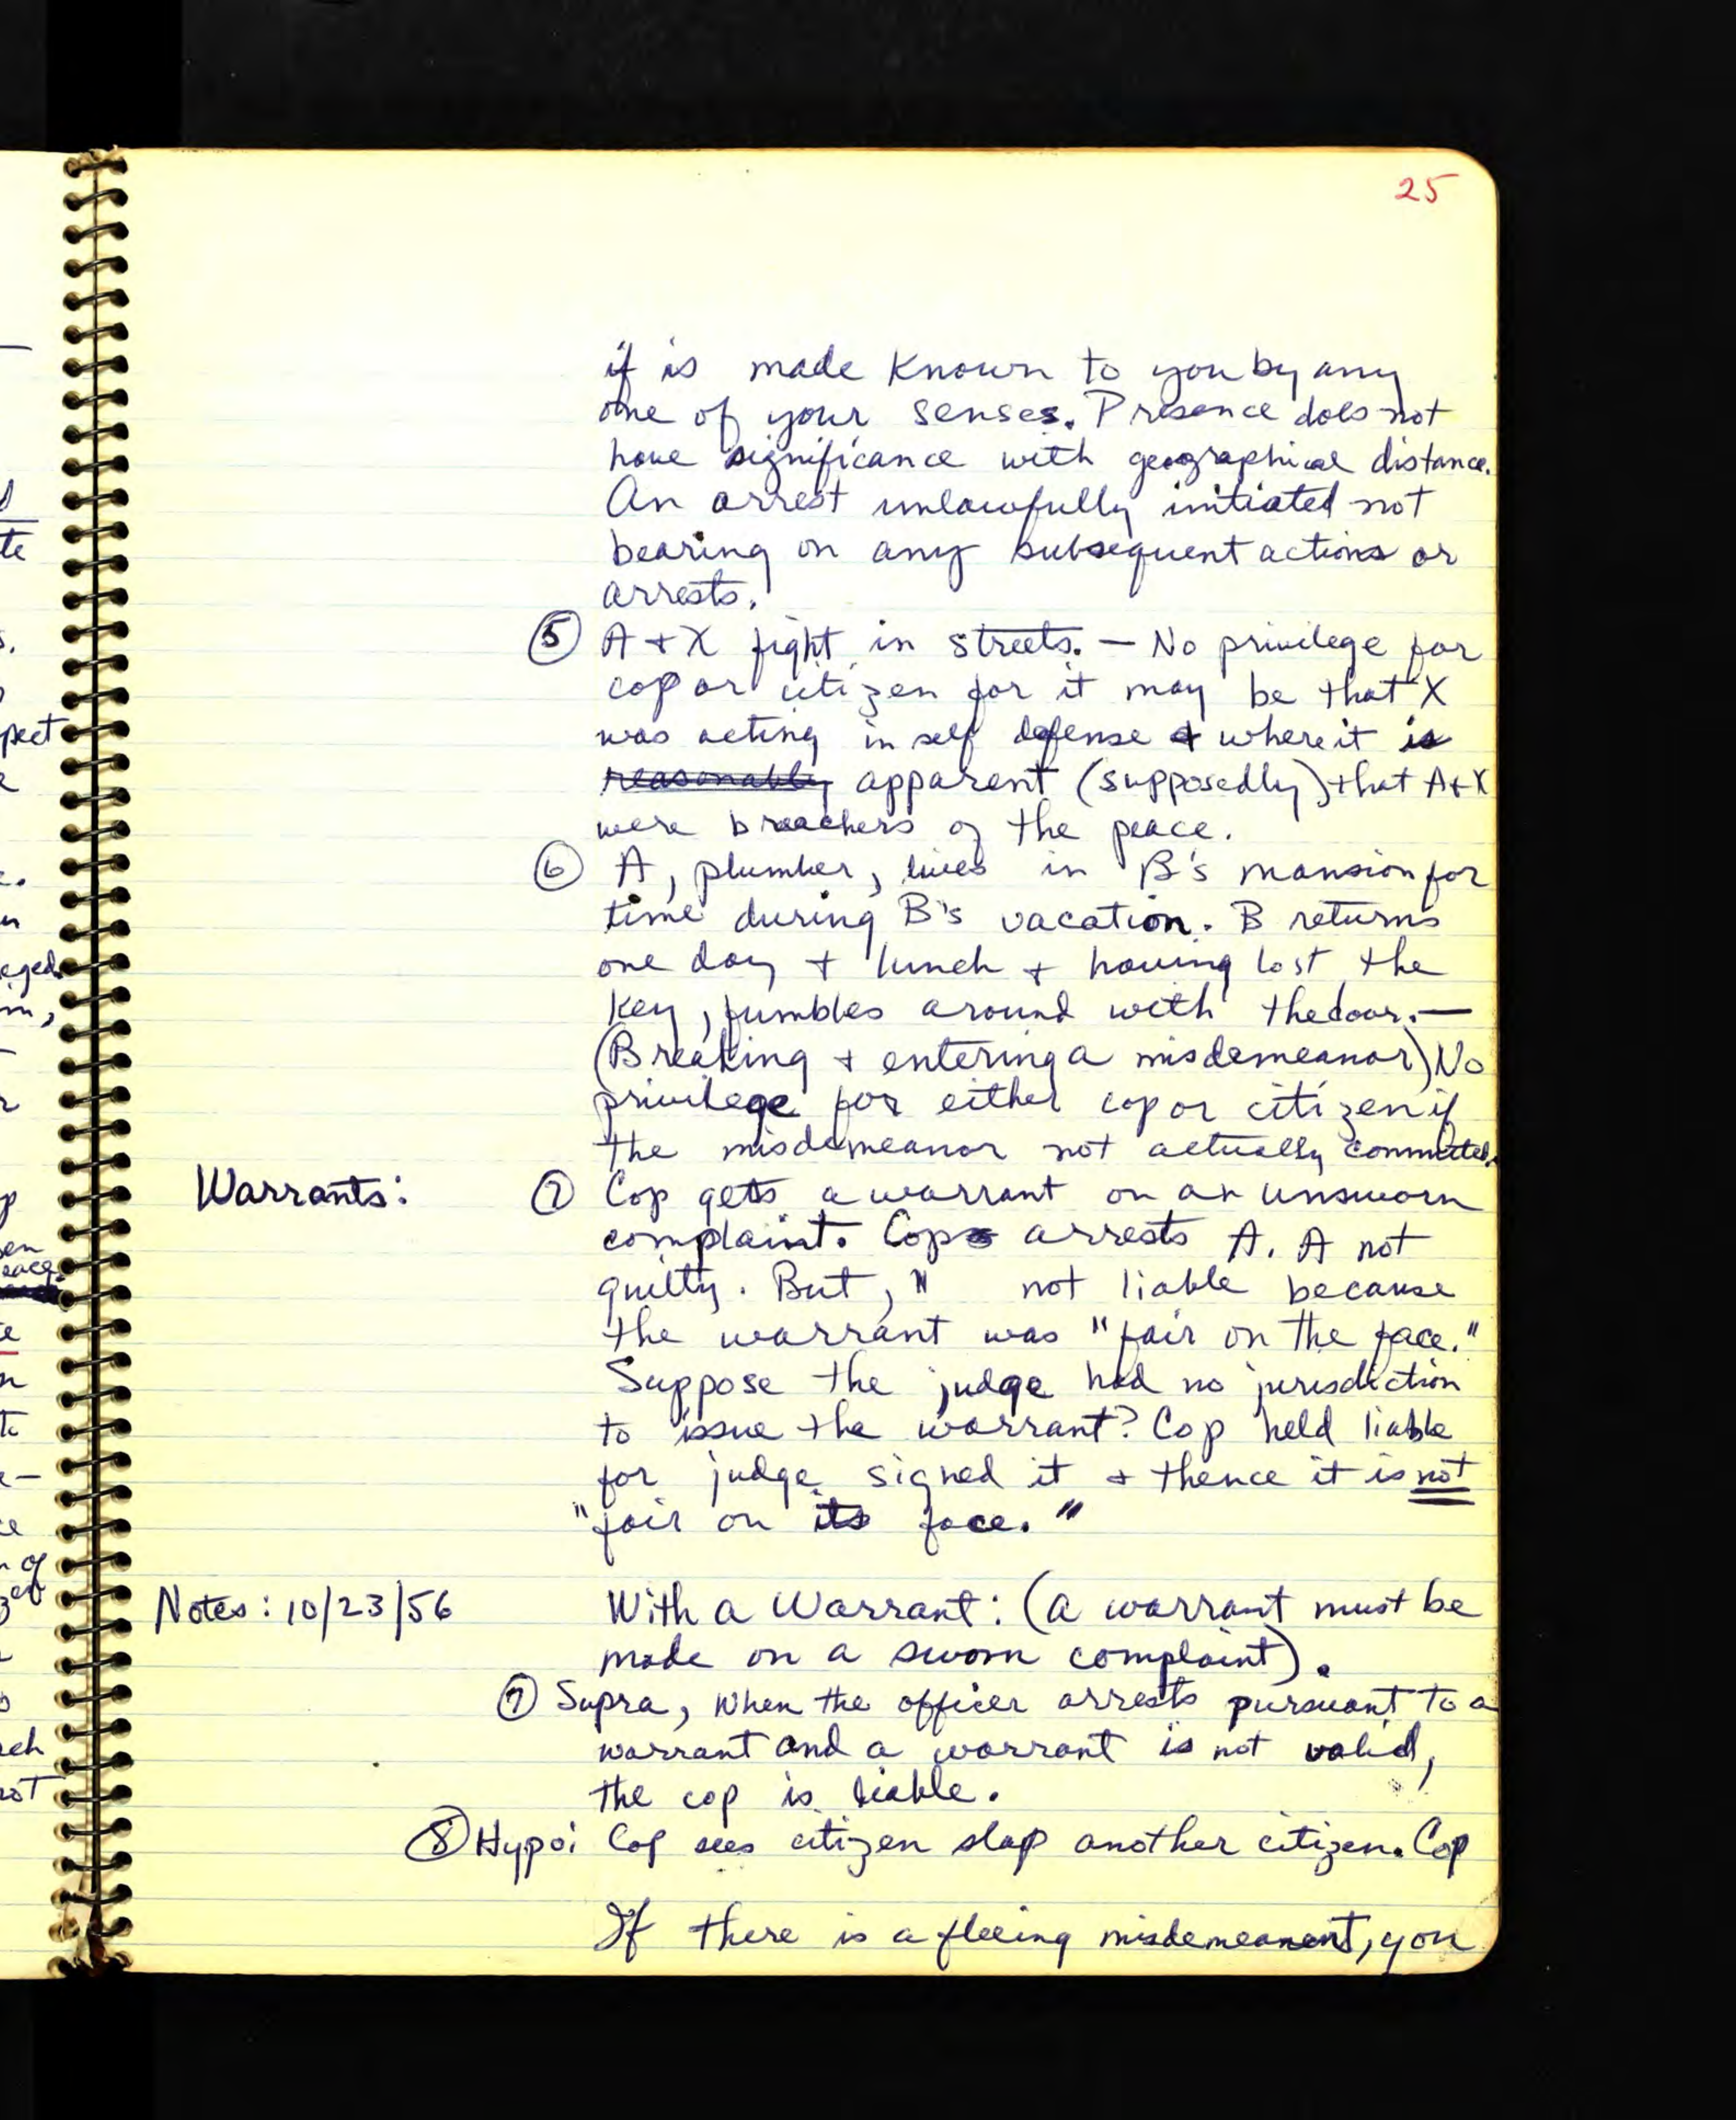 25
if is made known to you by any
one of your senses. Presence does not
have significance with geographical distance.
An arrest unlawfully initiated not
bearing on any subsequent actions or
arrests.
⑤ A + X fight in streets. — No privilege for
cop or citizen for it may be that X
was acting in self defense & where it is
reasonably apparent (supposedly) that A + X
were breachers of the peace.
⑥ A, plumber, lives in B's mansion for
time during B's vacation. B returns
one day + lunch + having lost the
key, fumbles around with the door. —
(Breaking + entering a misdemeanor) No
privilege for either cop or citizen if
the misdemeanor not actually committed.
Warrants: ⑦ Cop gets a warrant on an unsworn
complaint. Cop arrests A. A not
guilty. But, " not liable because
the warrant was "fair on the face."
Suppose the judge had no jurisdiction
to issue the warrant? Cop held liable
for judge signed it + thence it is not
"fair on its face."
Notes: 10/23/56 With a Warrant: (a warrant must be
made on a sworn complaint).
⑦ Supra, when the officer arrests pursuant to a
warrant and a warrant is not valid,
the cop is liable.
⑧ Hypo: Cop sees citizen slap another citizen. Cop
If there is a fleeing misdemeanent, you